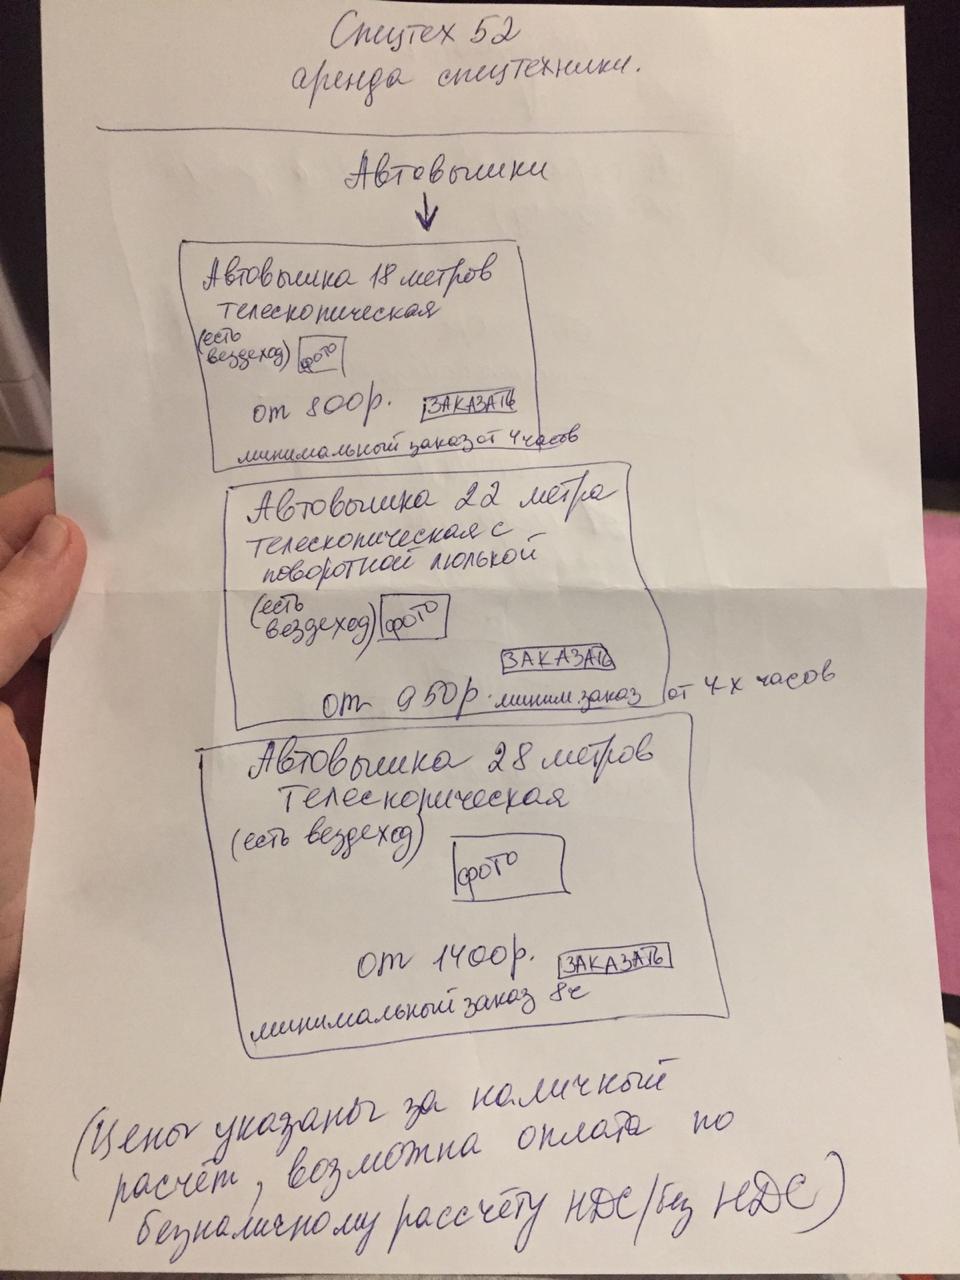 Спецтех 52
аренда спецтехники.
Автовышки
Автовышка 18 метров
телескопическая
(есть
вездеход)
фото
от 800р.
ЗАКАЗАТЬ
минимальный заказ от 4 часов
Автовышка 22 метра
телескопическая с
поворотной люлькой
(есть
вездеход)
фото
ЗАКАЗАТЬ
от 950р. миним. заказ от 4-х часов
Автовышка 28 метров
Телескопическая
(есть вездеход)
фото
от 1400р.
ЗАКАЗАТЬ
минимальный заказ 8ч
(Цены указаны за наличный
расчёт, возможна оплата по
безналичному рассчёту НДС/без НДС)